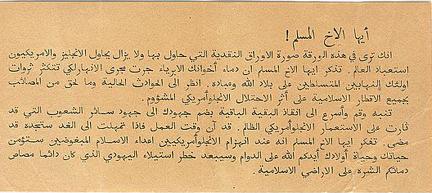 أيها الاخ المسلم !
انك ترى في هذه الورقة صورة الاوراق النقدية التي حاول بها ولا يزال يحاول الانجليز والامريكيون
استعباد العالم. تذكر ايها الاخ المسلم ان دماء أخوانك الابرياء جرت مجرى الانهار لكي تتكثر ثروات
اولئك النهابين المتسلطين على بلاد الله وعباده. انظر الى الحوادث الحالية وما لحق من المصائب
بجميع الاقطار الاسلامية على أثر الاحتلال الانجلوأمريكي المشؤوم.
تنبه وقم وأسرع الى انقاذ البقية الباقية بضم جهودك الى جهود سائر الشعوب التي قد
ثارت على الاستعمار الانجلوأمريكي الظالم. قد آن وقت العمل فاذا تمهلت الى الغد ستجده قد
مضى. تذكر ايها الاخ المسلم انه عند انهزام الانجلوأمريكيين اعداء الاسلام المبغوضين ستؤمن
حياتك وحياة أولادك أيدكم الله على الدوام وسيبعد خطر استيلاء اليهودي الذي كان دائما مصاص
دمائكم الشره على الاراضي الاسلامية.